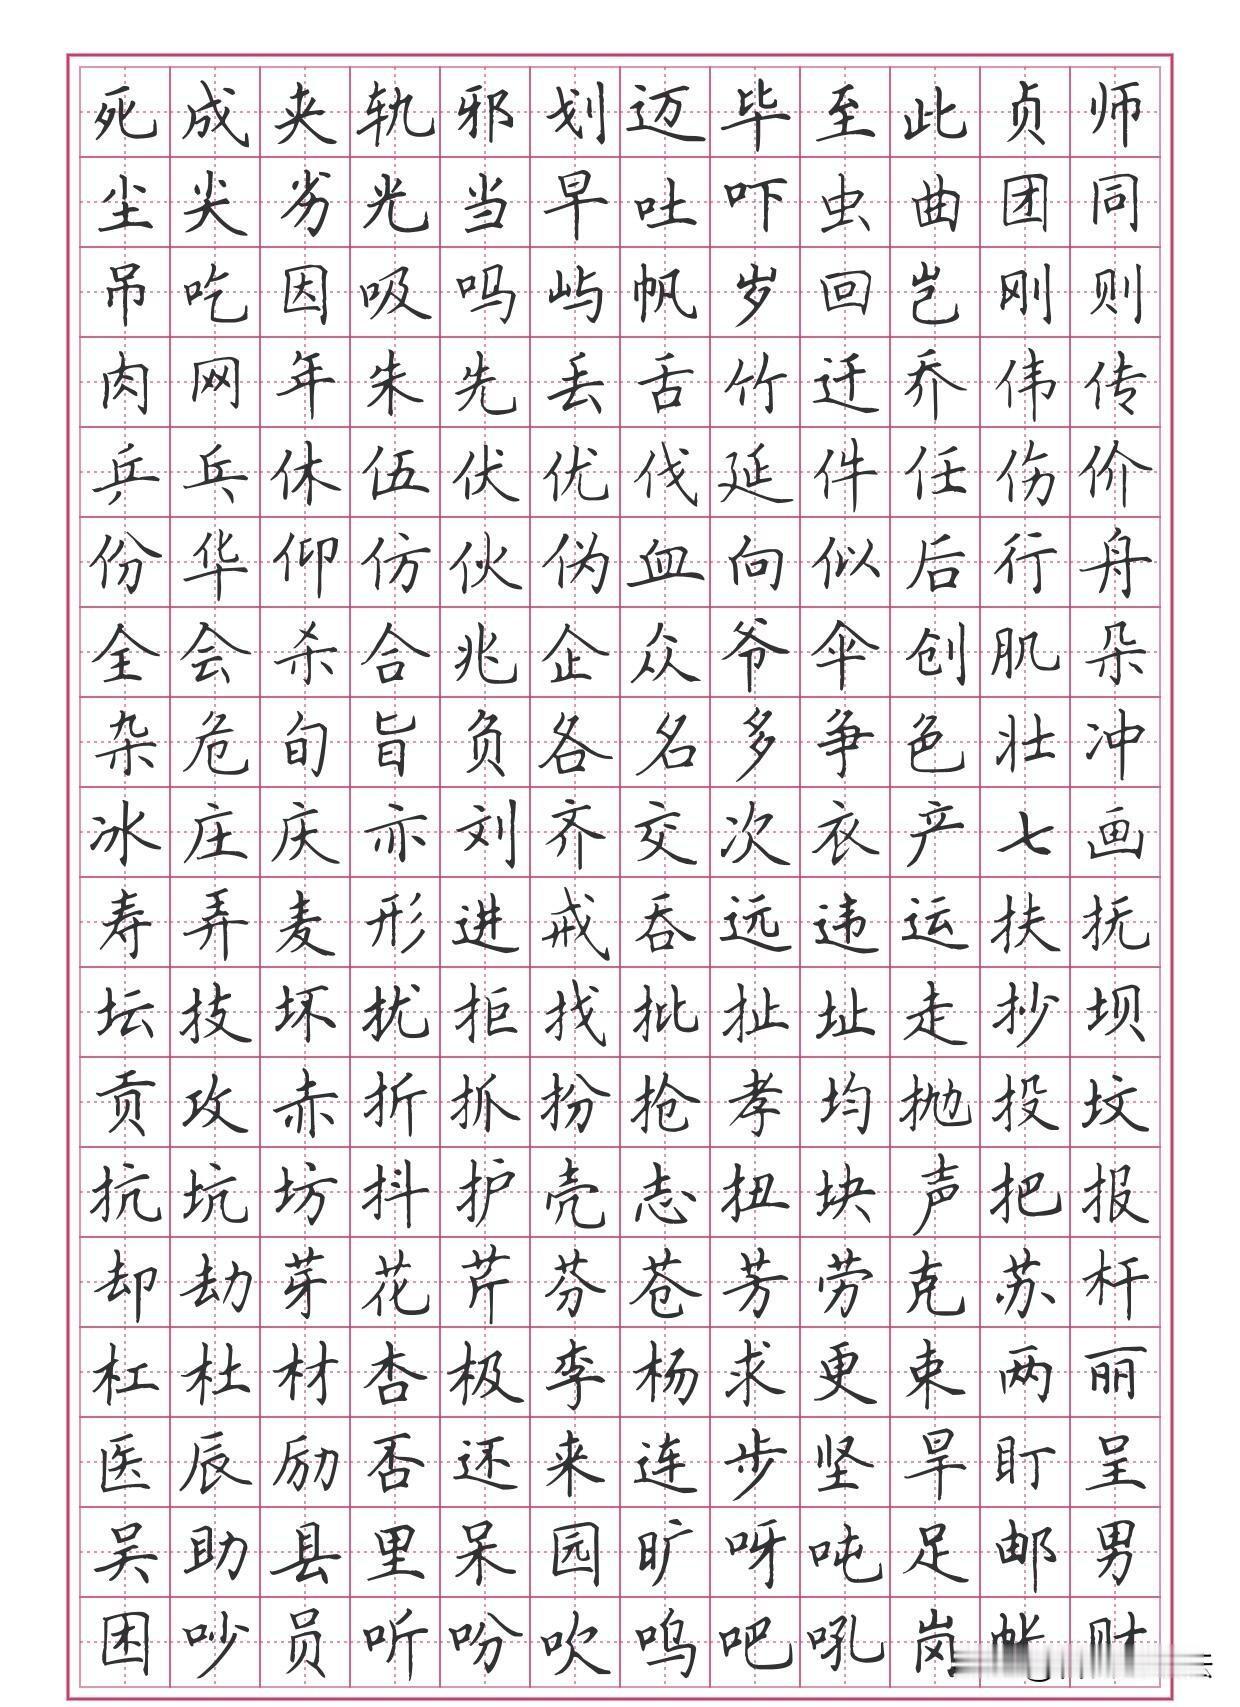 死成夹轨邪划迈毕至此贞师
尘尖劣光当早吐吓虫曲团同
吊吃因吸吗屿帆岁回岂刚则
肉网年朱先丢舌竹迁乔伟传
乒乓休伍伏优伐延件任伤价
份华仰仿伙伪血向似后行舟
全会杀合兆企众爷伞创肌朵
杂危旬旨负各名多争色壮冲
冰庄庆亦刘齐交次衣产七画
寿弄麦形进戒吞远违运扶抚
坛技坏扰拒找批扯址走抄坝
贡攻赤折抓扮抢孝均抛投坟
抗坑坊抖护壳志扭块声把报
却劫芽花芹芬苍芳劳克苏杆
杠杜材杏极李杨求更束两丽
医辰励否还来连步坚旱盯呈
吴助县里呆园旷呀吨足邮男
困吵员听吩吹呜吧吼岗帐财